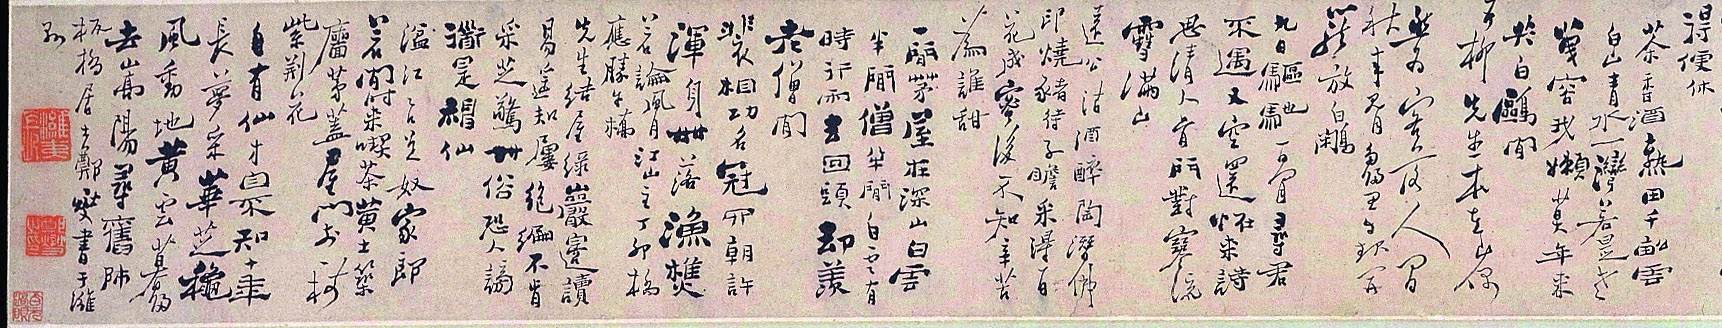 得便休
茶香酒熟田千畝雲
白山青水一灣若是老
農容我懶莫年來
共白鷗閒
先生本在山偶
為客落人間
秋來見月多歸思自起開
籠放白鷴
九日驅馳一日閒尋君
不遇又空還怪來詩
思清人骨門對寒流
雪滿山
遠公沽酒醉陶潛佛
印燒豬待子瞻采得百
花成蜜後不知辛苦
為誰甜
一間茅屋在深山白雲
半間僧半間白雲有
時行雨去回頭却羨
老僧閒
裴相功名冠四朝許
渾身世落漁樵
若論風月江山主丁卯橋
應勝午橋
先生結屋綠巖邊讀
易遙知屢絕編不肯
采芝驚世俗恐人謗
衟是神仙
湓江江口是奴家郎
若閒時來喫茶黃土築
牆茅蓋屋門前一樹
紫荊花
自有仙才自不知十年
長夢采華芝穐
風動地黃雲暮歸
去嵩陽尋舊師
板橋居士鄭燮書于濰
縣